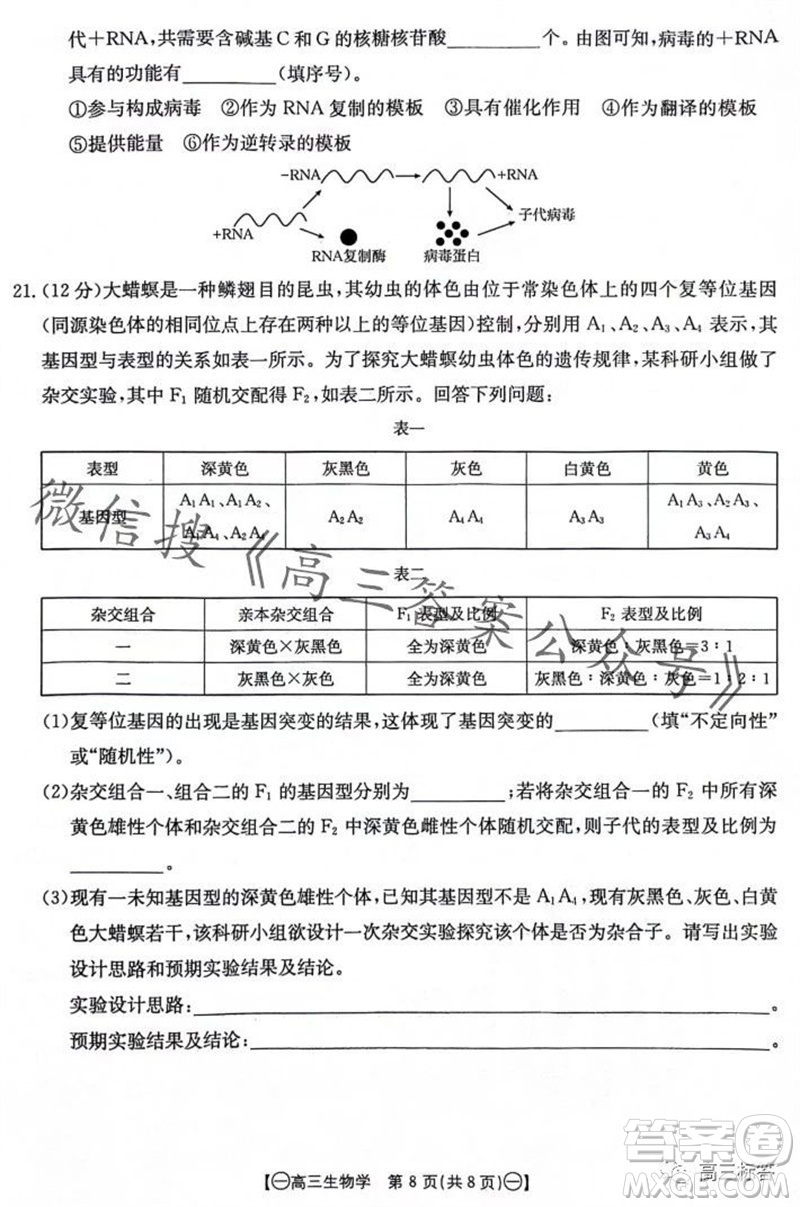 代＋RNA，共需要含碱基C和G的核糖核苷酸________个。由图可知，病毒的＋RNA
具有的功能有________（填序号）。
①参与构成病毒　②作为 RNA 复制的模板　③具有催化作用　④作为翻译的模板
⑤提供能量　⑥作为逆转录的模板
-RNA
+RNA
+RNA
子代病毒
RNA复制酶
病毒蛋白
21.(12分)大蜡螟是一种鳞翅目的昆虫，其幼虫的体色由位于常染色体上的四个复等位基因
(同源染色体的相同位点上存在两种以上的等位基因)控制，分别用 A₁、A₂、A₃、A₄ 表示，其
基因型与表型的关系如表一所示。为了探究大蜡螟幼虫体色的遗传规律，某科研小组做了
杂交实验，其中 F₁ 随机交配得 F₂，如表二所示。回答下列问题：
表一
表型 深黄色 灰黑色 灰色 白黄色 黄色
基因型 A₁A₁、A₁A₂、A₁A₃、A₁A₄ A₂A₂ A₄A₄ A₃A₃ A₂A₃、A₃A₄
表二
杂交组合 亲本杂交组合 F₁ 表型及比例 F₂ 表型及比例
一 深黄色×灰黑色 全为深黄色 深黄色：灰黑色＝3：1
二 灰黑色×深黄色 全为深黄色 灰黑色：深黄色：灰黑色＝1：2：1
(1)复等位基因的出现是基因突变的结果，这体现了基因突变的________（填“不定向性”
或“随机性”）。
(2)杂交组合一、组合二的 F₁ 的基因型分别为________；若将杂交组合一的 F₂ 中所有深
黄色雄性个体和杂交组合二的 F₂ 中深黄色雌性个体随机交配，则子代的表型及比例为
________。
(3)现有一未知基因型的深黄色雄性个体，已知其基因型不是 A₁A₄，现有灰黑色、灰色、白黄
色大蜡螟若干，该科研小组欲设计一次杂交实验探究该个体是否为杂合子。请写出实验
设计思路和预期实验结果及结论。
实验设计思路：________。
预期实验结果及结论：________。
【㊀高三生物学　第 8 页(共 8 页)㊀】
微信搜《高三答案公众号》
答案卷
高三标答
MXQE.COM